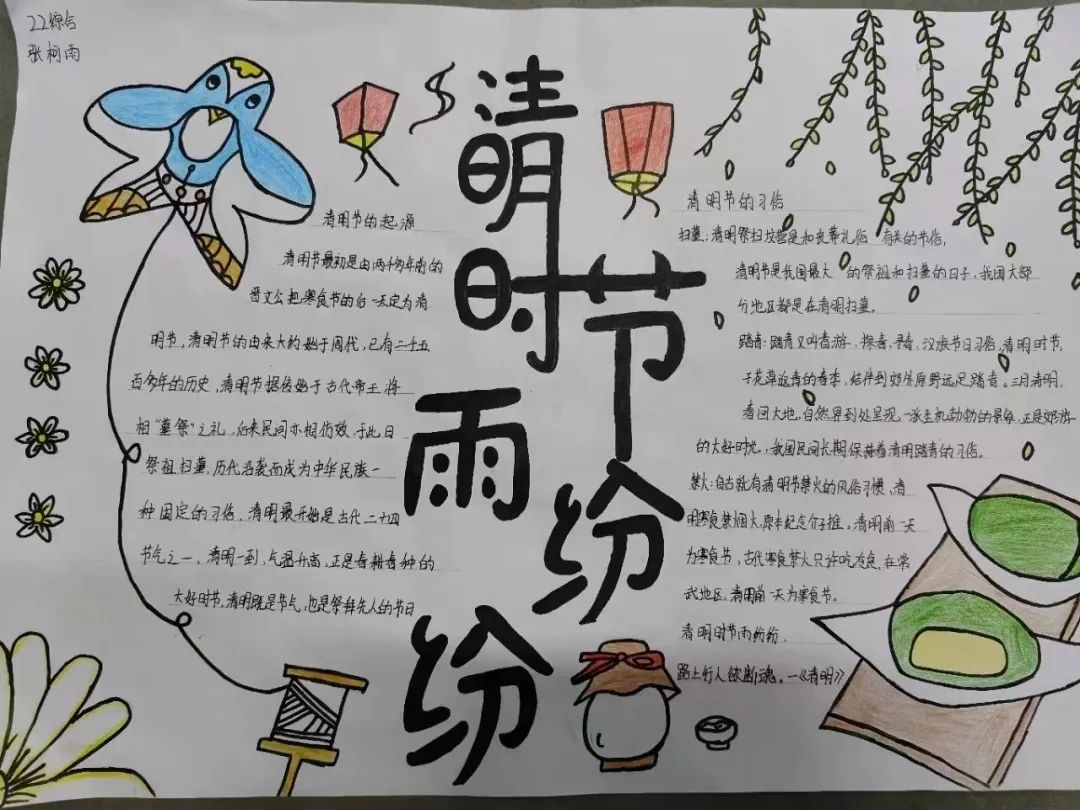 22综合
张柯雨
清明时节雨纷纷
清明节的起源
清明节最初是由两千多年前的
晋文公把寒食节的后一天定为清
明节，清明节的由来大约始于周代，已有二千五
百多年的历史，清明节据传始于古代帝王将
相“墓祭”之礼，后来民间亦相仿效，于此日
祭祖扫墓，历代沿袭而成为中华民族一
种固定的习俗，清明最开始是古代二十四
节气之一，清明一到，气温升高，正是春耕春种的
大好时节，清明既是节气，也是祭拜先人的节日
清明节的习俗
扫墓：清明祭扫坟茔是和丧葬礼俗 有关的节俗，
清明节是我国最大 的祭祖和扫墓的日子，我国大部
分地区都是在清明扫墓。
踏青：踏青又叫春游、探春、寻春，汉族节日习俗，清明时节，
于花草返青的春季，结伴到郊外原野远足踏青。三月清明，
春回大地，自然界到处呈现一派生机勃勃的景象，正是郊游
的大好时光，我国民间长期保持着清明踏青的习俗。
禁火：自古就有清明节禁火的风俗习惯，清
明寒食禁烟火，原本纪念介子推。清明前一天
为寒食节，古代寒食禁火只许吃冷食，在常
武地区，清明前一天为寒食节。
清明时节雨纷纷，
路上行人欲断魂。—《清明》